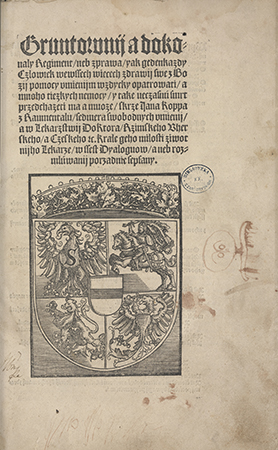 Gruntownij a doko-
naly Regiment / neb zprawa / yak gedenkazdy
Czlowiek wewssech wiecech zdrawij swe z Bo
zij pomocy vmienijm wzdycky opatrowati / a
mnoho tiezkych nemocy / y take vczassni smrt
przedchazeti ma a muoze / skrze Jana Koppa
z Raumentalu / sedmera swobodnych vmienij /
a w Lekarzstwij Doktora / Rzimskeho Vher
skeho / a Czeskeho ic. Krale geho milosti ziwot
nijho Lekarze / w ssest Dyalogow / a neb roz
mluwanij porzadnie sepsany.
S